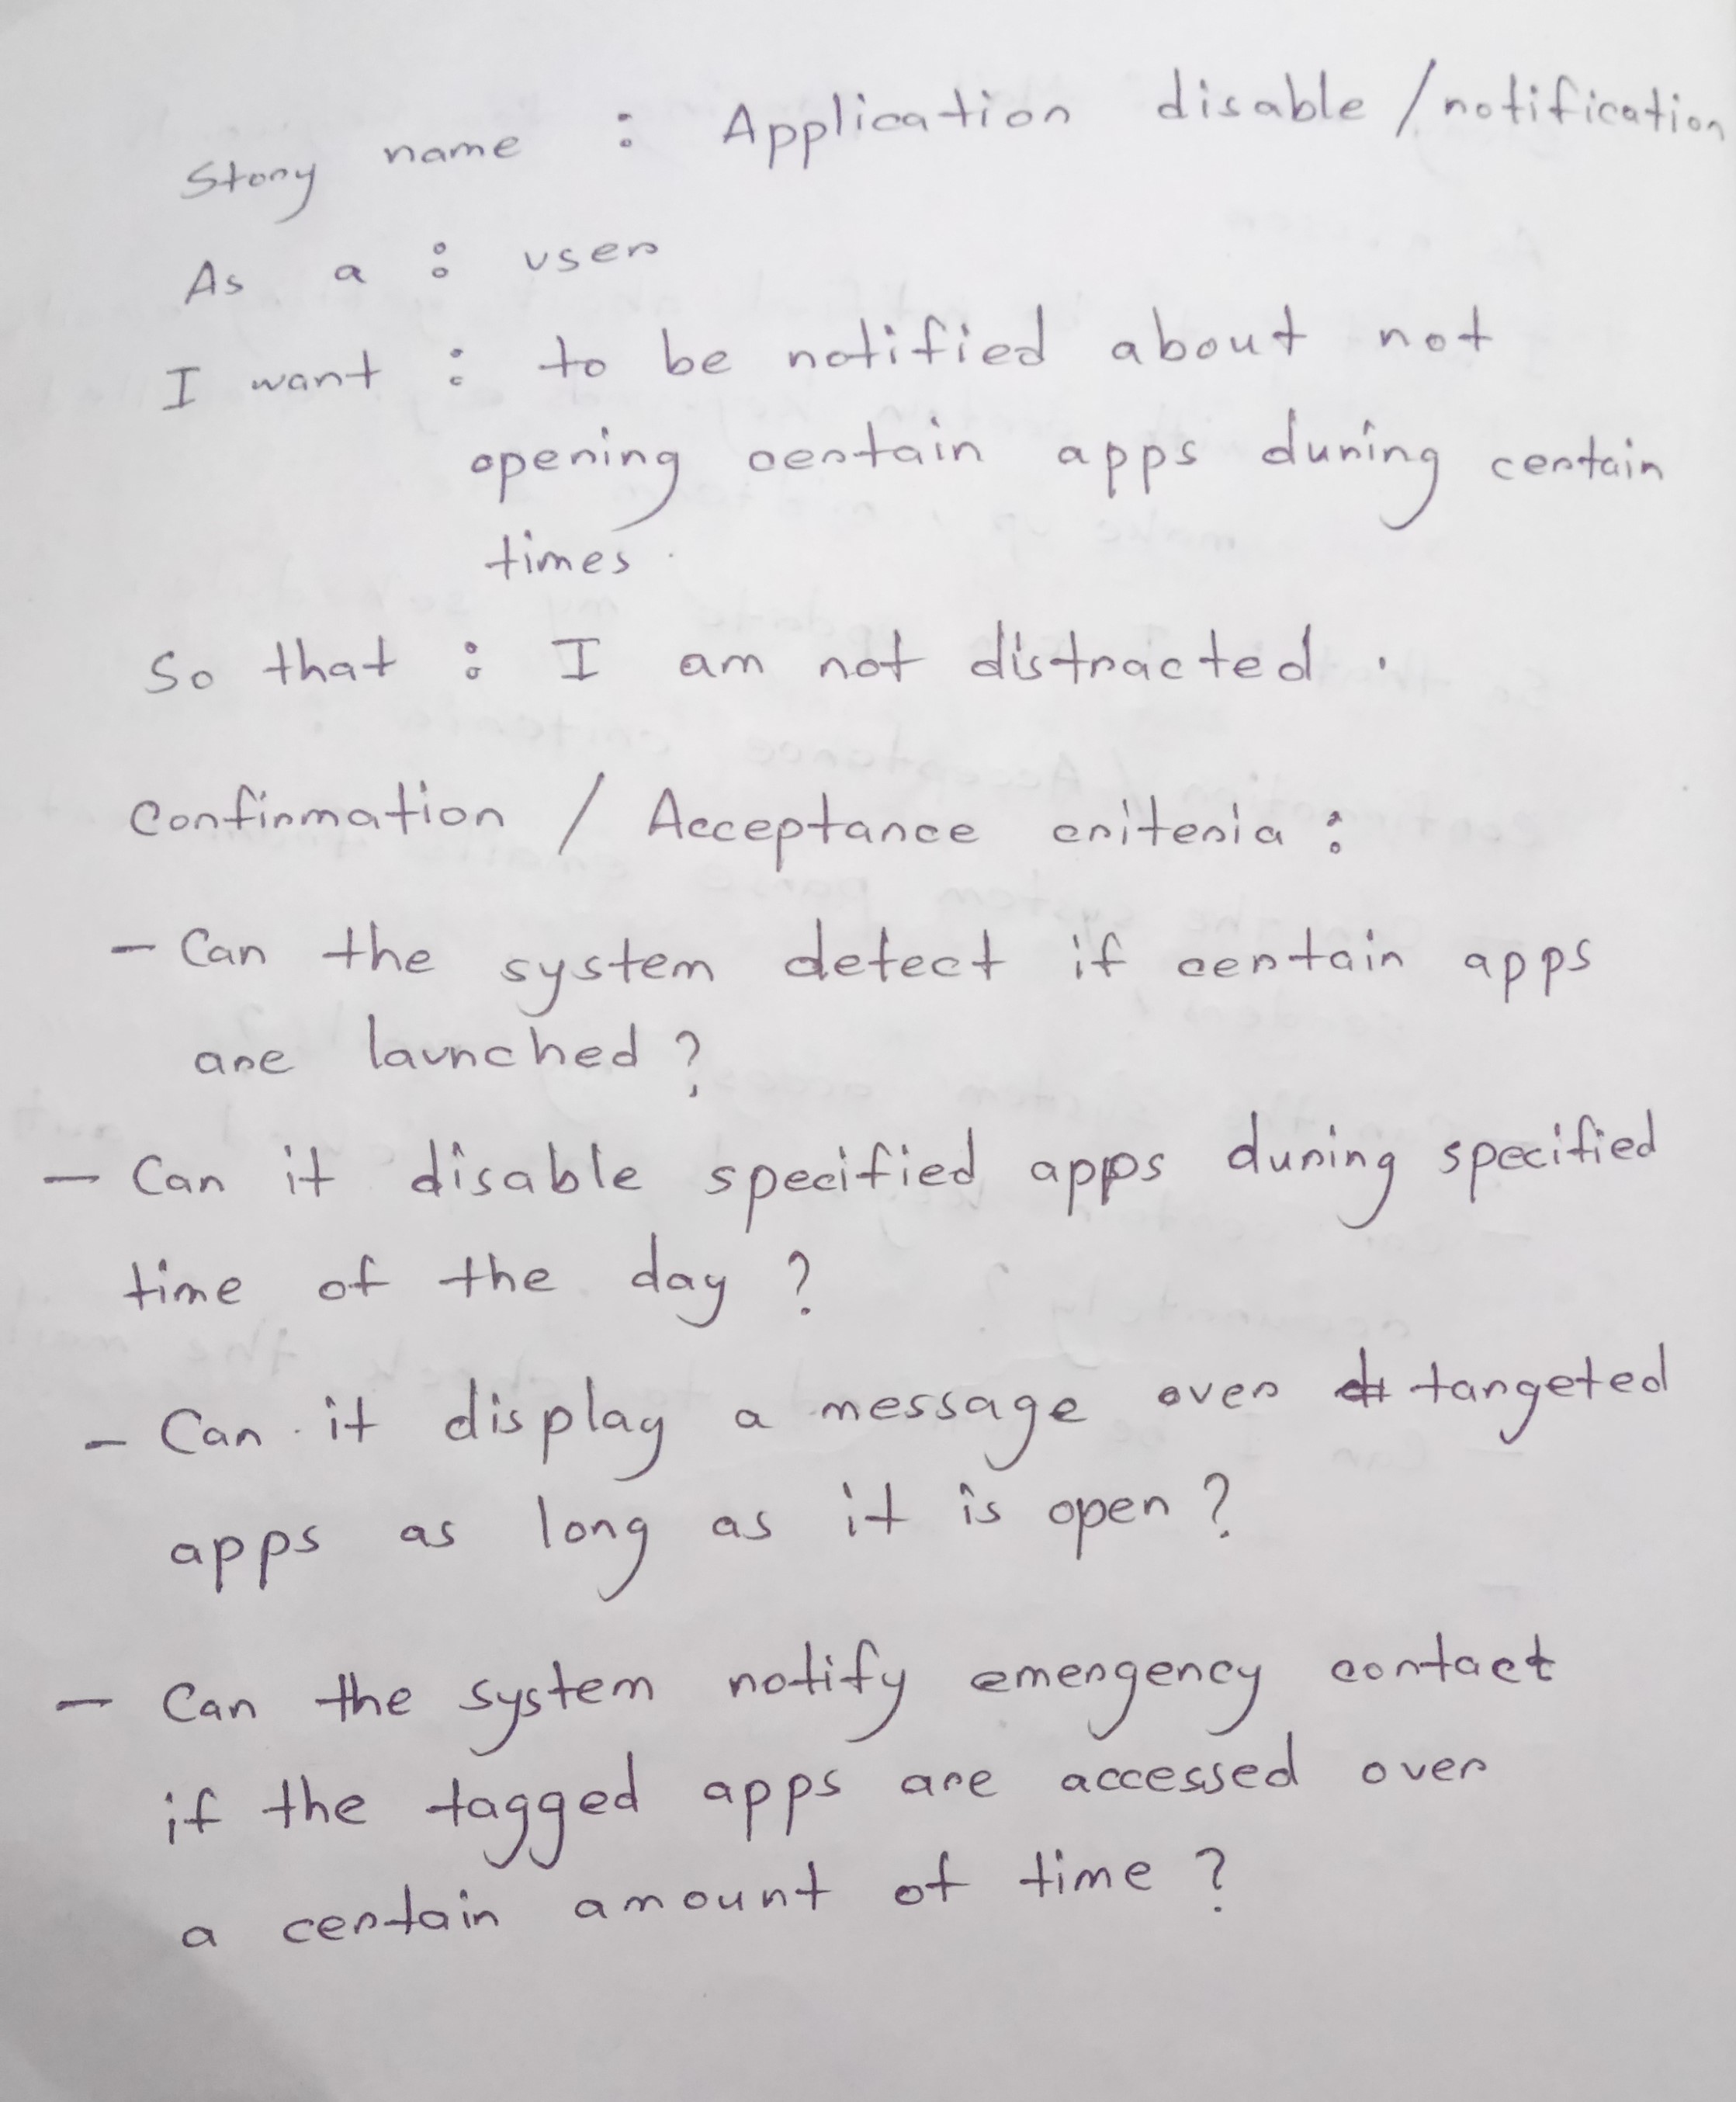 Story name : Application disable / notification
As a : user
I want : to be notified about not
opening certain apps during certain
times.
So that : I am not distracted.
Confirmation / Acceptance criteria :
- Can the system detect if certain apps
are launched ?
- Can it disable specified apps during specified
time of the day ?
- Can it display a message over targeted
apps as long as it is open ?
- Can the system notify emergency contact
if the tagged apps are accessed over
a certain amount of time ?